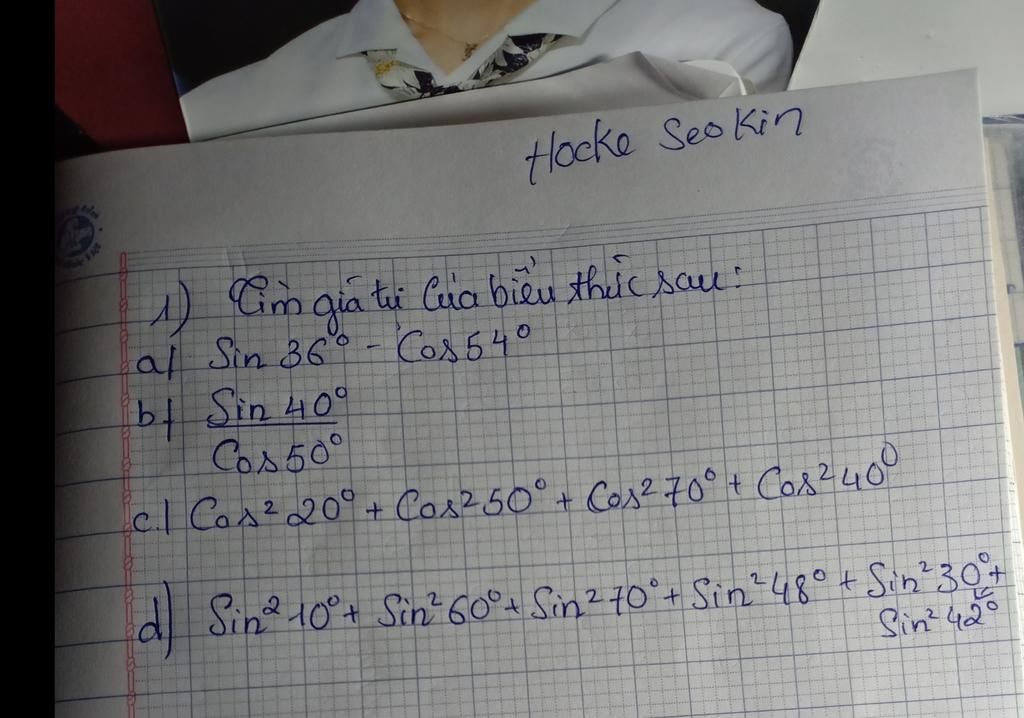 Hocke Seokin
1) Tìm giá tri của biểu thức sau:
a/ Sin 36⁰ - Cos 54⁰
b/ Sin 40⁰
Cos 50⁰
c.1 Cos² 20⁰ + Cos² 50⁰ + Cos² 70⁰ + Cos² 40⁰
d) Sin² 10⁰ + Sin² 60⁰ + Sin² 70⁰ + Sin² 48⁰ + Sin² 30⁰ +
Sin² 42⁰